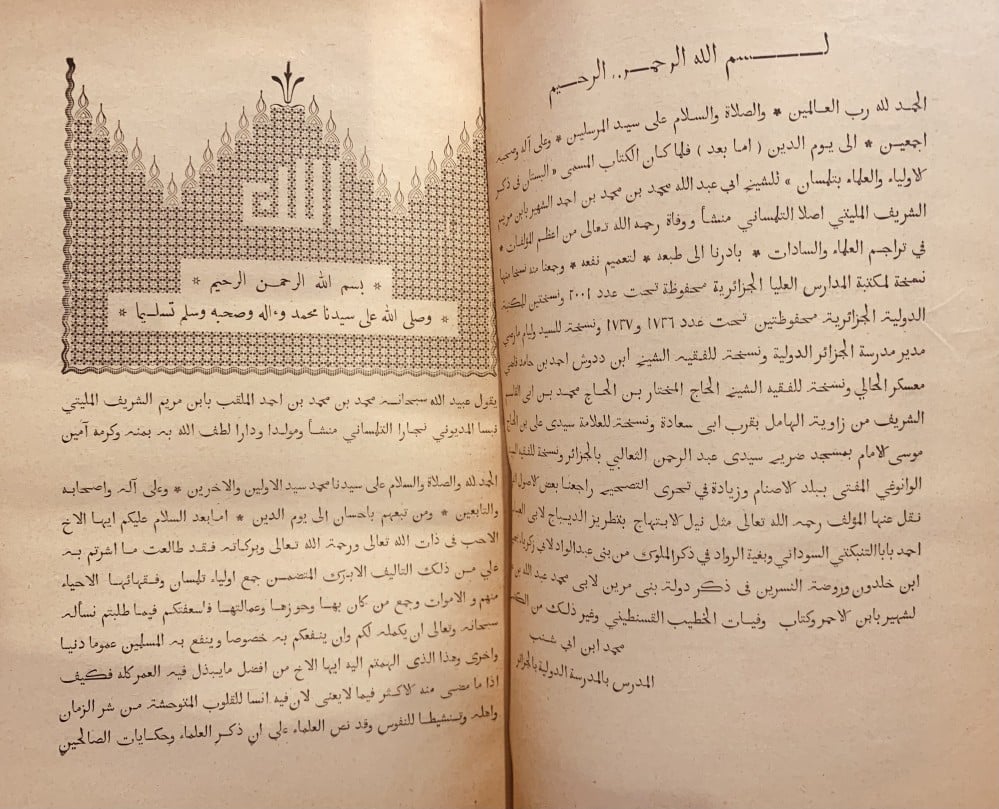 بسم الله الرحمن الرحيم
الحمد لله رب العالمين * والصلاة والسلام على سيد المرسلين * وعلى آله وصحبه
اجمعين * الى يوم الدين ( اما بعد ) فلما كان الكتاب المسمى « البستان في ذكر
لاولياء والعلماء بتلمسان » للشيخ ابي عبد الله محمد بن محمد بن احمد الشهير بابن مريم
الشريف المليتي اصلا التلمساني منشأ ووفاة رحمه الله تعالى من اعظم المؤلفات *
في تراجم العلماء والسادات * بادرنا الى طبعه * لتعميم نفعه * وجمعنا منه نسخا منها
نسخة لمكتبة المدارس العليا الجزائرية محفوظة تحت عدد ٢٠٠١ ونسختين للمكتبة
الدولية الجزائرية محفوظتين تحت عدد ١٧٣٦ و١٧٣٧ ونسخة للسيد وليام مارسي
مدير مدرسة الجزائر الدولية ونسخة للفقيه الشيخ ابن ددوش احمد بن حامد قاضي
معسكر الحالي ونسخة للفقيه الشيخ الحاج المختار بن الحاج محمد بن ابي القاسم
الشريف من زاوية الهامل بقرب ابى سعادة ونسخة للعلامة سيدى على بن الحاج
موسى لامام بمسجد ضريح سيدى عبد الرحمن الثعالبي بالجزائر ونسخة للفقيه
الوانوغي المفتى ببلد لاصنام وزيادة في تحرى التصحيح راجعنا بعض لاصول التى
نقل عنها المؤلف رحمه الله تعالى مثل نيل لابتهاج بتطريز الديباج لابى العباس
احمد بابا التنبكتي السوداني وبغية الرواد في ذكر الملوك من بني عبد الواد لابي زكرياء يحيى
ابن خلدون وروضة النسرين في ذكر دولة بنى مرين لابى محمد عبد الله
لشهير بابن لاحمر وكتاب وفيات الخطيب القسنطيني وغير ذلك من الكتب
محمد ابن ابي شنب
المدرس بالمدرسة الدولية بالجزائر
الله
* بسم الله الرحمن الرحيم *
* وصلى الله على سيدنا محمد وءاله وصحبه وسلم تسليما *
يقول عبيد الله سبحانه محمد بن محمد بن احمد الملقب بابن مريم الشريف المليتي
نسبا المديوني نجارا التلمساني منشأ ومولدا ودارا لطف الله به بمنه وكرمه آمين
الحمد لله والصلاة والسلام على سيدنا محمد سيد الاولين والاخرين * وعلى آله واصحابه
والتابعين * ومن تبعهم باحسان الى يوم الدين * اما بعد السلام عليكم ايها الاخ
الاحب في ذات الله تعالى ورحمة الله تعالى وبركاته فقد طالعت ما اشرتم به
علي من ذلك التاليف الابرك المتضمن جمع اولياء تلمسان وفقهائها الاحياء
منهم و الاموات وجمع من كان بها وحوزها وعمالتها فاسعفتكم فيما طلبتم نسأله
سبحانه وتعالى ان يكمله لكم وان ينفعكم به خصوصا وينفع به المسلمين عموما دنيا
واخرى وهذا الذى الهمتم اليه ايها الاخ من افضل ما يبذل فيه العمر كله فكيف
اذا ما مضى منه لاكثر فيما لا يعنى لان فيه انسا للقلوب المتوحشة من شر الزمان
واهله وتنشيطا للنفوس وقد نص العلماء على ان ذكر العلماء وحكايات الصالحين